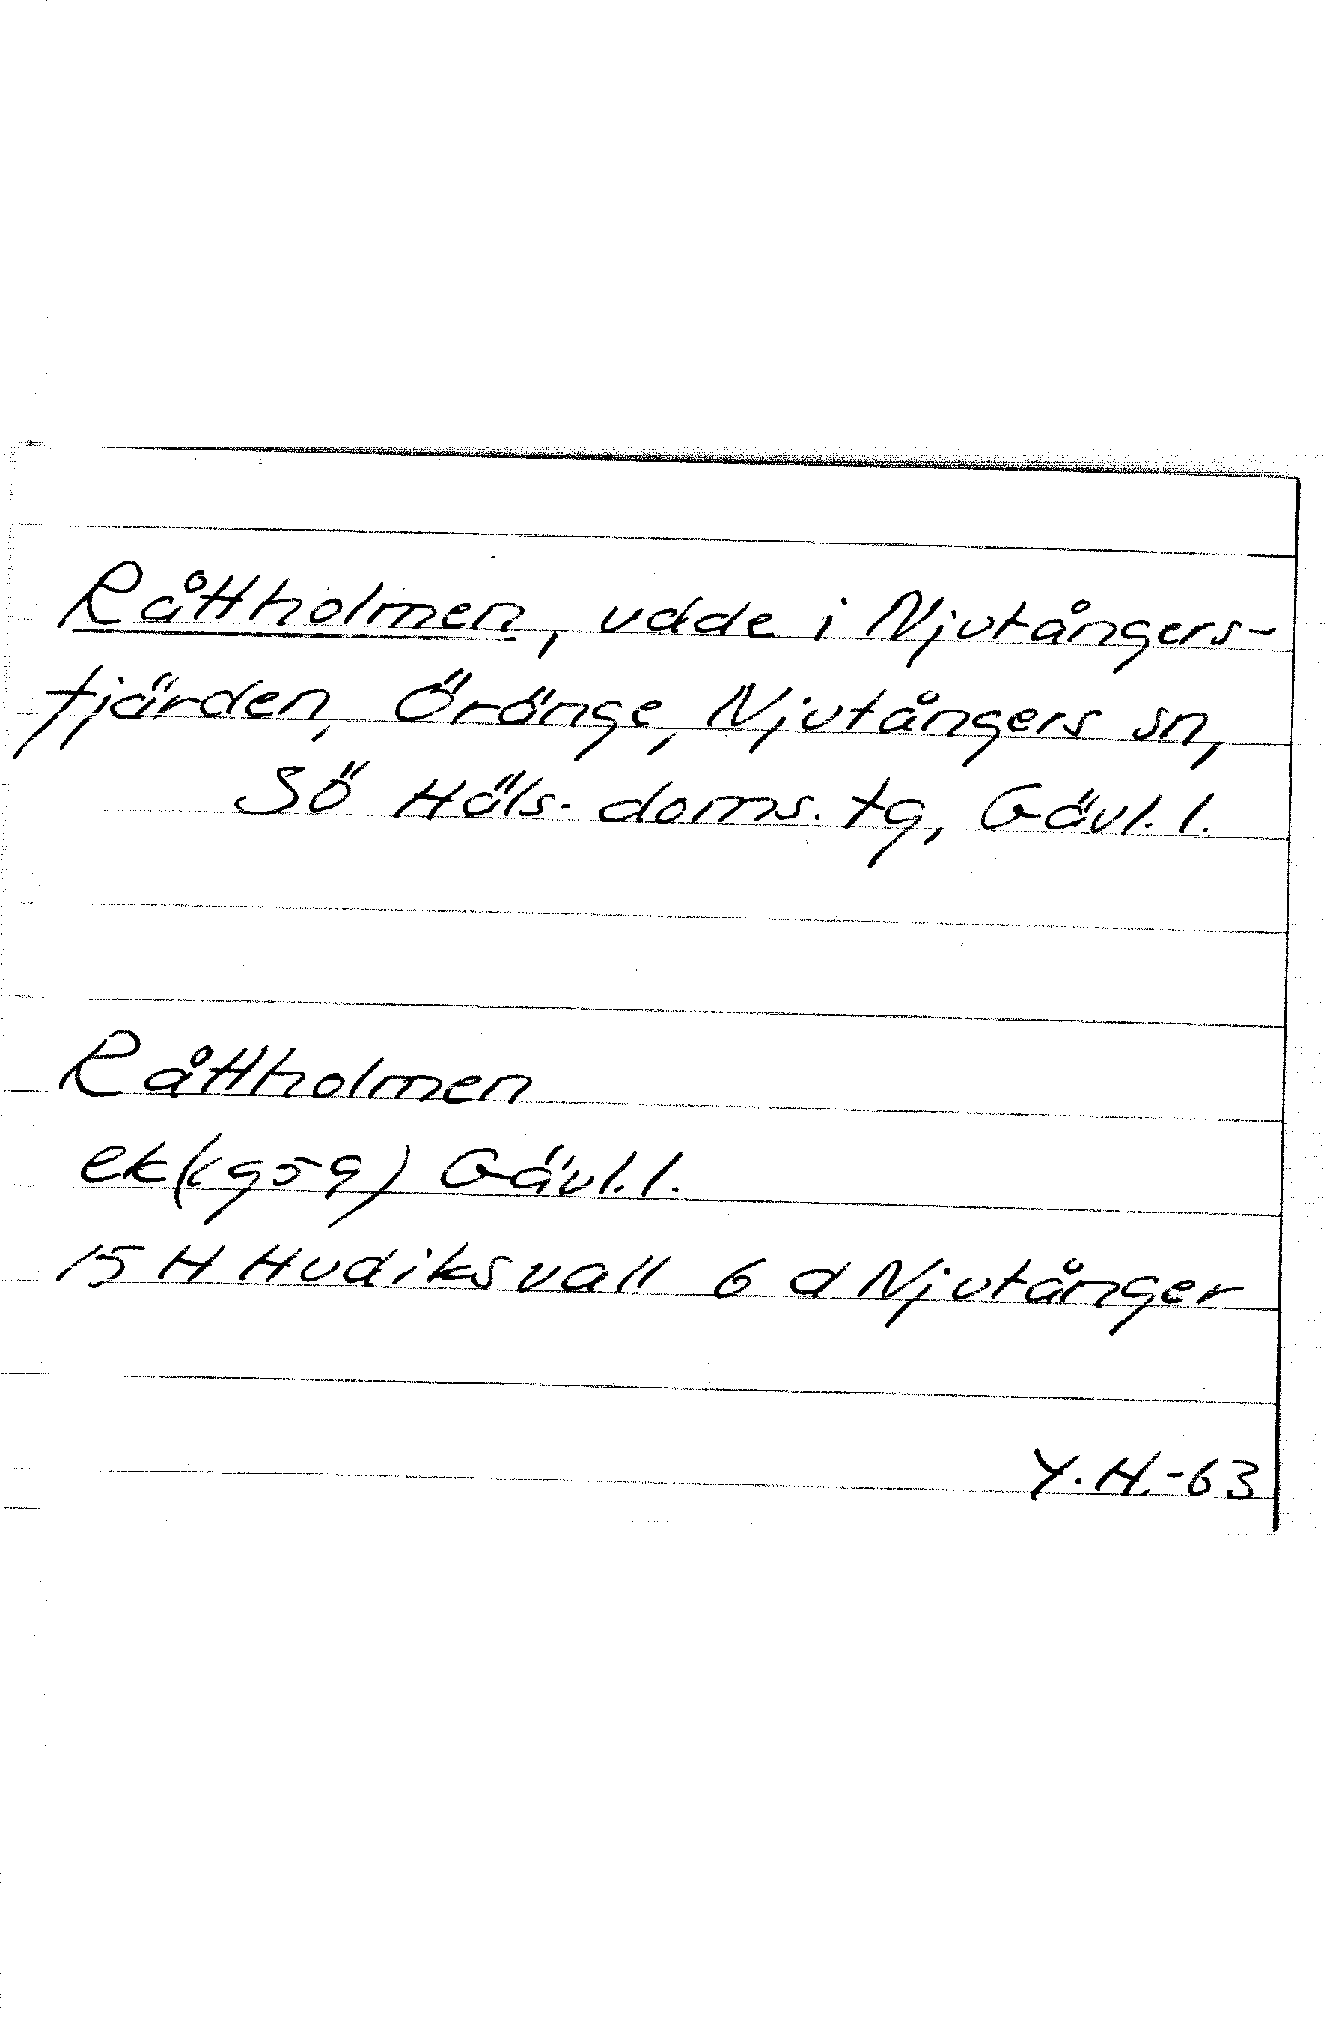 Råttholmen, udde i Njutångers-
fjärden, Öränge, Njutångers sn,
Sö Häls. doms. tg, Gävl. l.
Råttholmen
ek(k959) Gävl. l.
15 H Hudiksvall 6 d Njutånger
Y.H.-63